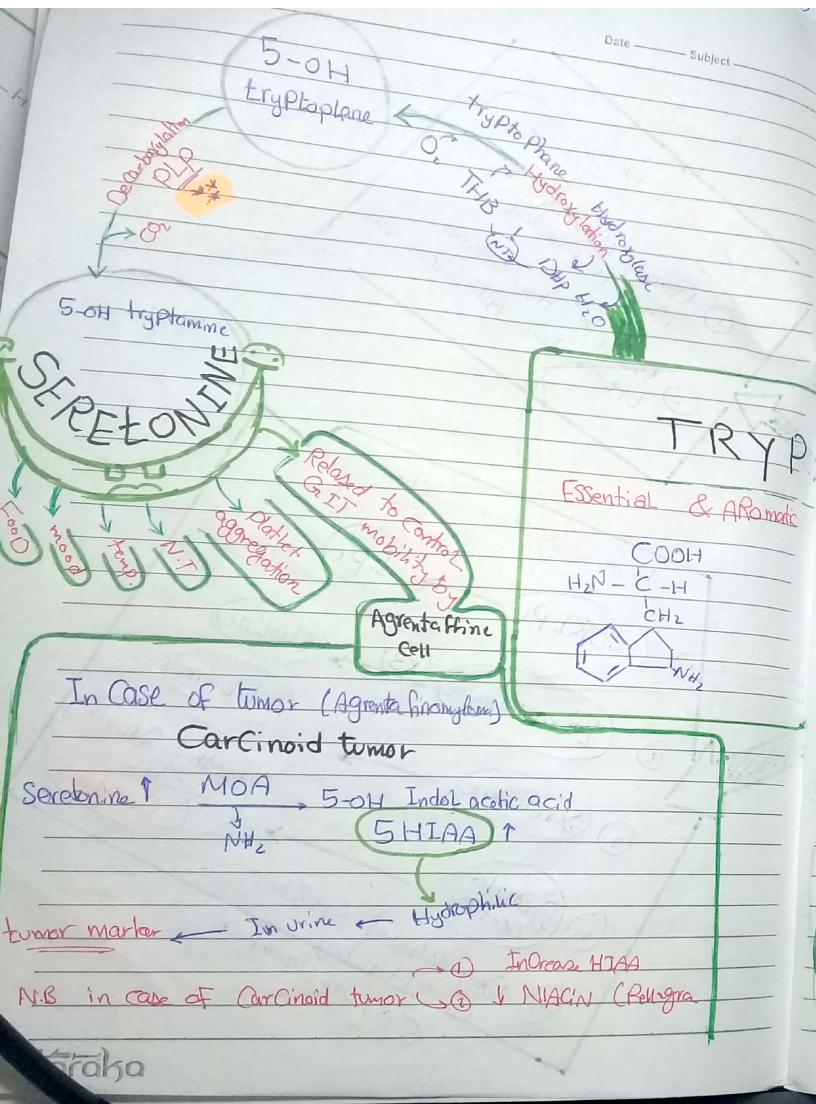 Date Subject
5-OH
tryptoplane
tryptophane
Hydroxylase
Hydroxylation
O2
THB
DHB
H2O
Decarboxylation
PLP
5-OH tryptamine
SERETONINE
Food
mood
temp.
N.T
Platlet
aggregation
Relased to Control
GIT mobility by
Agrentaffine
Cell
TRYP
Essential & ARomatic
COOH
H2N - C - H
CH2
NH2
In Case of tumor (Agrentafinomylome)
Carcinoid tumor
Seretonine ↑ MOA → 5-OH Indol acetic acid
NH2
5HIAA ↑
Hydrophilic
tumor marker ← In urine ←
① InCrease HIAA
N.B in case of Carcinoid tumor ② ↓ NIACiN (Pellagra